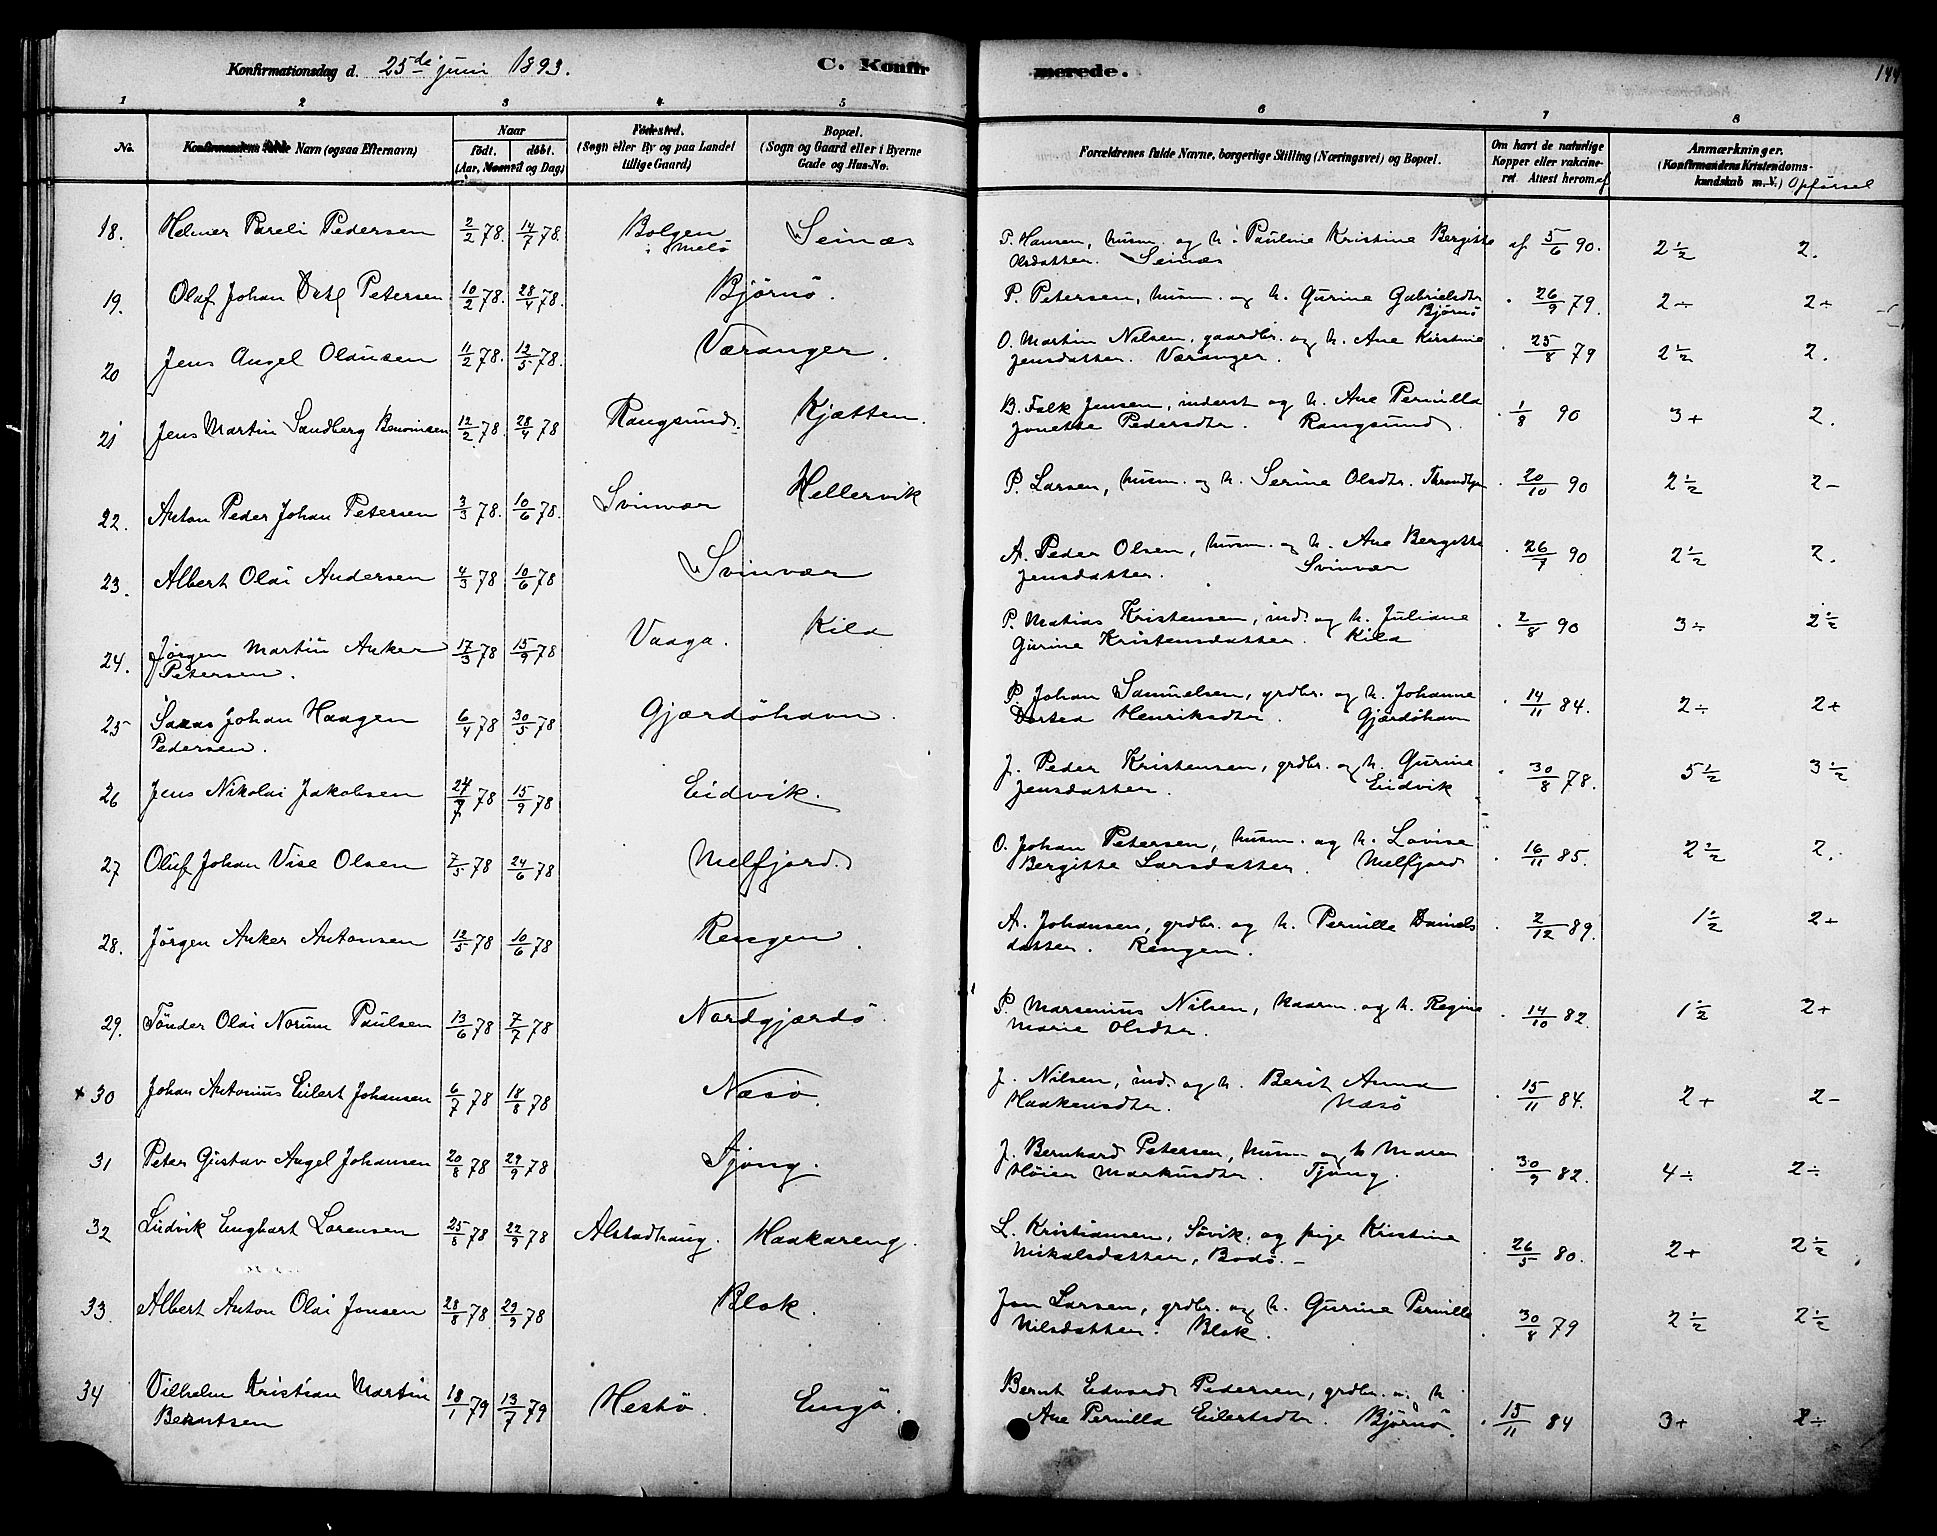 Konfirmationsdag d. 25de juni 1893. C. Konfirmerede. 144
1 2 3 4 5 6 7 8
No. Konfirmandens fulde Navn (ogsaa Efternavn) Naar født. døbt. (Aar, Maaned og Dag) Fødested. (Sogn eller By og paa Landet tillige Gaard) Bopæl. (Sogn og Gaard eller i Byerne Gade og Hus-No. Forældrenes fulde Navne, borgerlige Stilling (Næringsvei) og Bopæl. Om havt de naturlige Kopper eller vakcineret Attest herom af Anmærkninger. (Konfirmandens Kristendomskundskab m. V.) Opførsel
18. Helmer Pareli Pedersen 2/2 78. 14/7 78. Bolgen i Melö Seinæs P. Hansen, husm. og h. Pauline Kristine Bergitte
Olsdatter. Seinæs af 5/6 90. 2 1/2 2.
19. Olaf Johan Petersen 10/2 78. 28/4 78. Björnö. P. Petersen, husm. og h. Gurine Gabrielsdtr
Björnö 26/9 79. 2÷ 2+
20 Jens Angel Olausen 11/2 78. 12/5 78. Væranger. O. Martin Nilsen, gaardbr. og h. Ane Kirstine
Jensdatter. Væranger. 25/8 79 2 1/2 2.
21 Jens Martin Sandberg 12/2 78. 28/4 78 Rangsund. Kjætten. B. Falk Jensen, inderst og h. Ane Pernilla
Jonette Pedersdtr. Rangsund. 1/8 90 3+ 2.
22. Anton Peder Johan Petersen 3/3 78. 10/6 78. Svinvær Hellervik P. Larsen, husm. og h. Serine Olsdtr. 20/10 90 2 1/2 2-
23. Albert Olai Andersen 4/3 78 10/6 78 Svinvær A. Peder Olsen, husm. og h. Ane Bergitte
Jensdatter. Svinvær 26/7 90 2 1/2 2.
24. Jörgen Martin Anker
Petersen. 17/3 78 15/9 78 Vaaga. Kila P. Matias Kristensen, ind. og h. Juliane
Gurine Kristensdatter. Kila 2/8 90 3÷ 2 1/2
25 Johan Haagen
Pedersen. 6/4 78 30/5 78 Gjærdöhavn. P. Johan Samuelsen, grdbr. og h. Johanne
Dortea Henriksdtr. Gjærdöhavn 14/11 84. 2÷ 2+
26 Jens Nikolai Jakobsen 27/7 78 15/9 78 Eidvik. J. Peder Kristensen, grdbr. og h. Gurine
Jensdatter. Eidvik 30/8 78. 5 1/2 3 1/2
27 Oluf Johan Vise Olsen 7/5 78 24/6 78 Melfjord. O. Johan Petersen, husm. og h. Lovise
Bergitte Larsdatter. Melfjord 16/11 85. 2 1/2 2.
28. Jörgen Anker Antonsen 12/5 78 10/6 78 Rengen. A. Johansen, grdbr. og h. Pernille Daniels
datter. Rengen. 2/12 89. 1 1/2 2+
29. Tönder Olai Norum Paulsen 13/6 78 7/7 78 Nordgjærdö. P. Marsenius Nilsen, kaarm. og h. Regine
Marie Olsdtr. 14/10 82. 1 1/2 2+
+ 30 Johan Antonius Eilert Johansen 6/7 78 18/8 78 Næsö. J. Nilsen, ind. og h. Berit Anna
Haakensdtr. Næsö 15/11 84. 2+ 2-
31 Peter Gustav Angel Johansen 20/8 78 29/9 78 Tjong. J. Bernhard Petersen, husm og h Maren
Höier Markusdtr. Tjong. 30/9 82. 4÷ 2÷
32 Ludvik Enghart Lorensen 25/8 78 22/9 78 Alstadhaug. Haakareng. L. Kristiansen, Sövik. og pige Kristine
Nikalsdatter, Bodö. 26/5 80. 2+ 2 1/2
33. Albert Anton Olai Jonsen 28/8 78. 29/9 78 Blok. Jon Larsen, grdbr. og h. Gurine Pernille
Nilsdatter. Blok. 30/8 79 2 1/2 2 1/2
34 Vilhelm Kristian Martin
Berntsen 18/1 79 13/7 79 Hestö. Engö. Bernt Edvard Pedersen, grdbr. o. h
Ane Pernilla Eilertsdtr. Björnö. 15/11 84 3+ 2÷